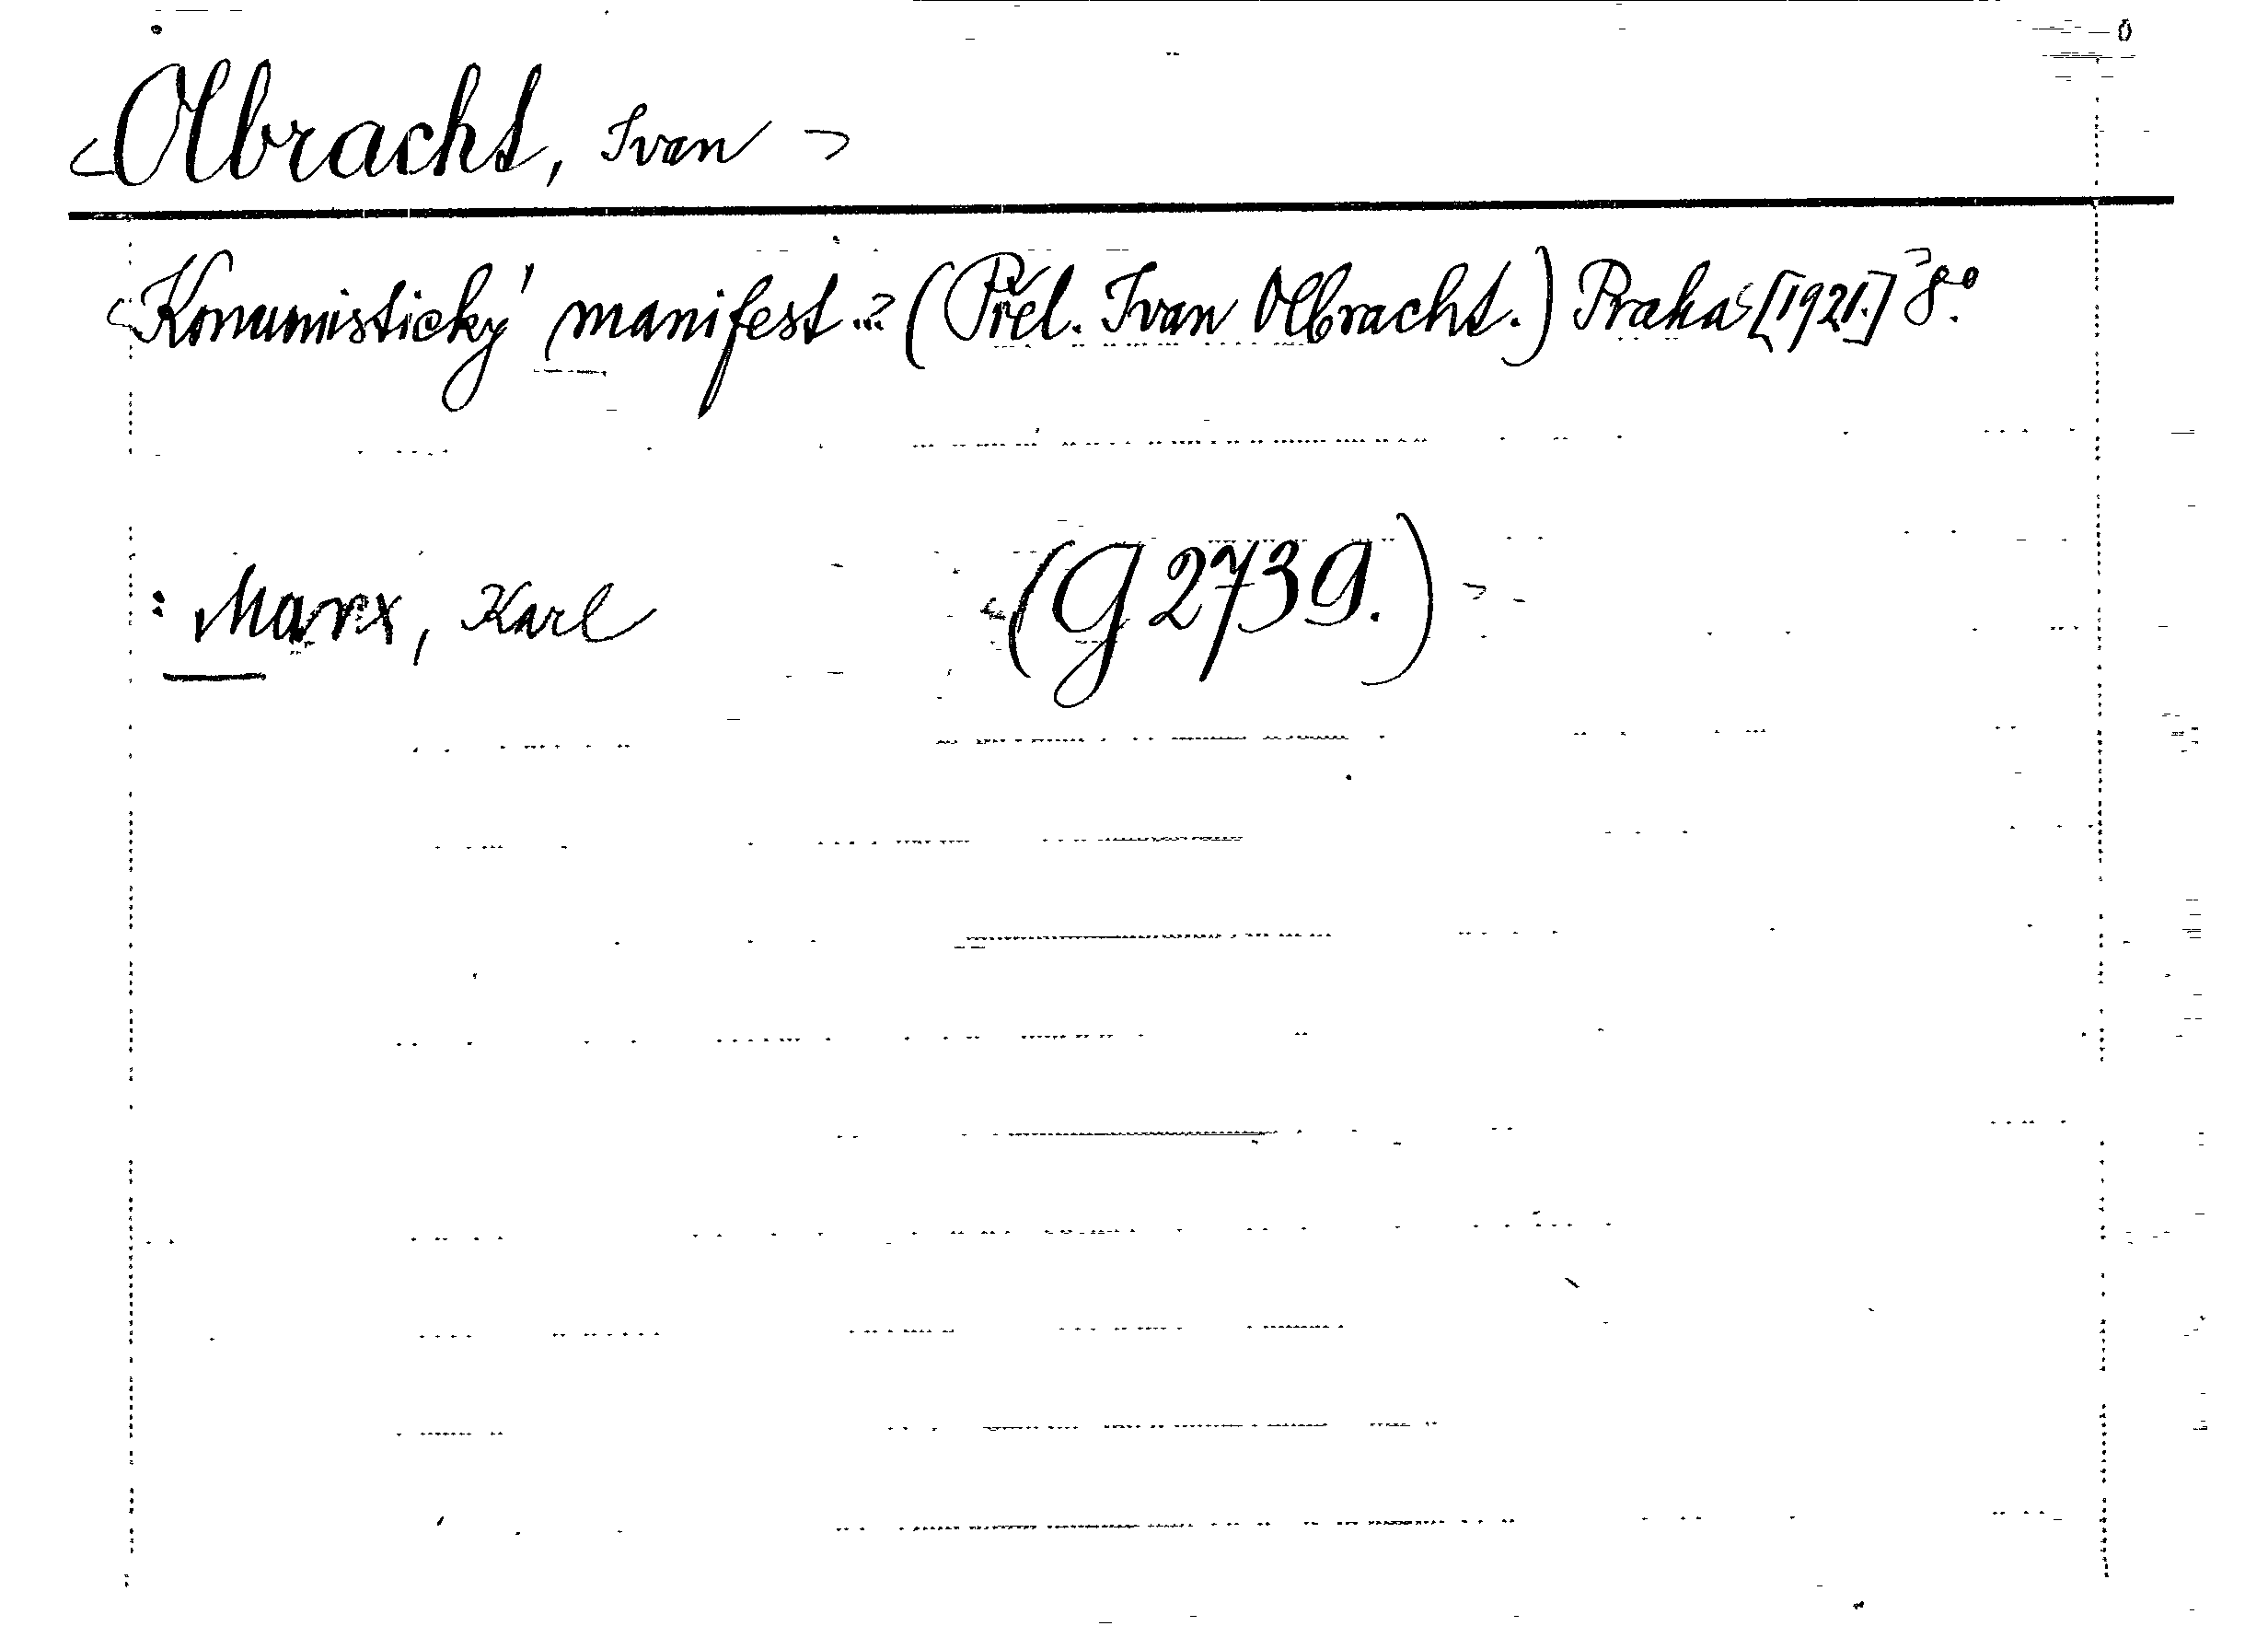 <Olbracht, Ivan>
<Komunistický manifest...> (Přel. Ivan Olbracht.) Praha <[1921.]> 8°.
: Marx, Karl <(G 2739.)>